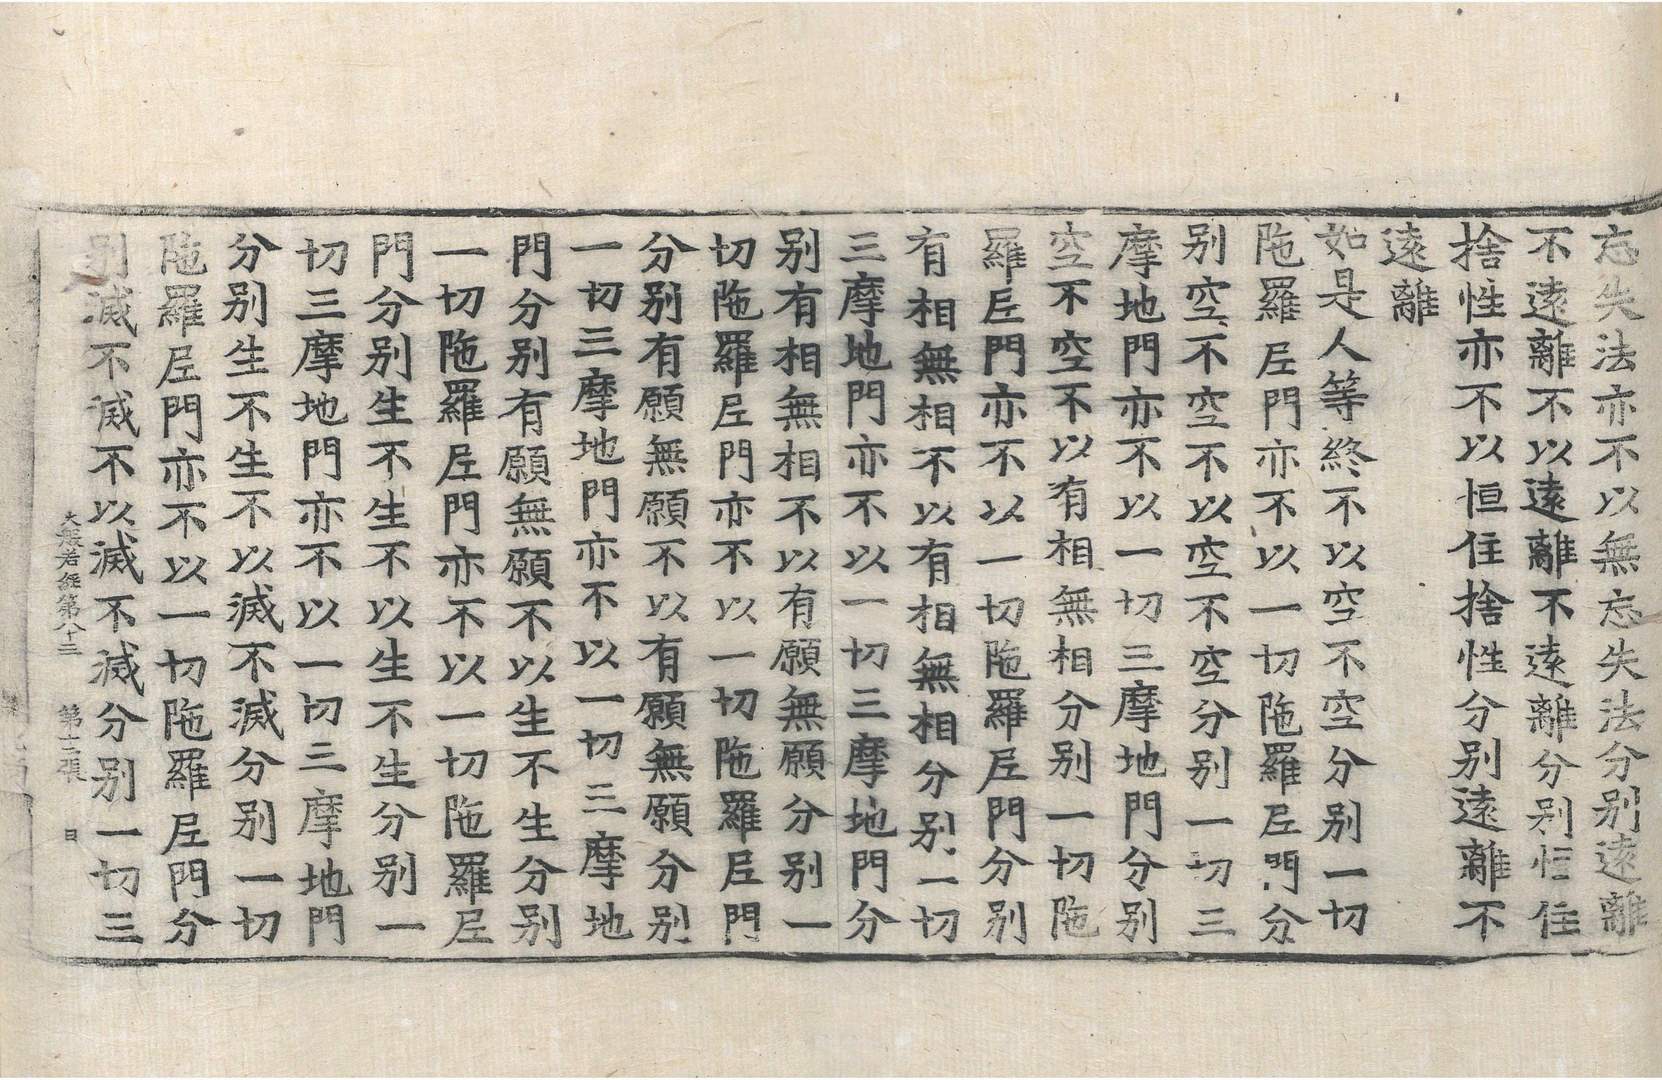 忘失法亦不以無忘失法分别遠離
不遠離不以遠離不遠離分别恒住
捨性亦不以恒住捨性分别遠離不
遠離
如是人等終不以空不空分别一切
陁羅𡰱門亦不以一切陁羅𡰱門分
别空不空不以空不空分别一切三
摩地門亦不以一切三摩地門分别
空不空不以有相無相分别一切陁
羅𡰱門亦不以一切陁羅𡰱門分别
有相無相不以有相無相分别一切
三摩地門亦不以一切三摩地門分
别有相無相不以有願無願分别一
切陁羅𡰱門亦不以一切陁羅𡰱門
分别有願無願不以有願無願分别
一切三摩地門亦不以一切三摩地
門分别有願無願不以生不生分别
一切陁羅𡰱門亦不以一切陁羅𡰱
門分别生不生不以生不生分别一
切三摩地門亦不以一切三摩地門
分别生不生不以滅不滅分别一切
陁羅𡰱門亦不以一切陁羅𡰱門分
别滅不滅不以滅不滅分别一切三
大般若經第八十二 第十二張 目